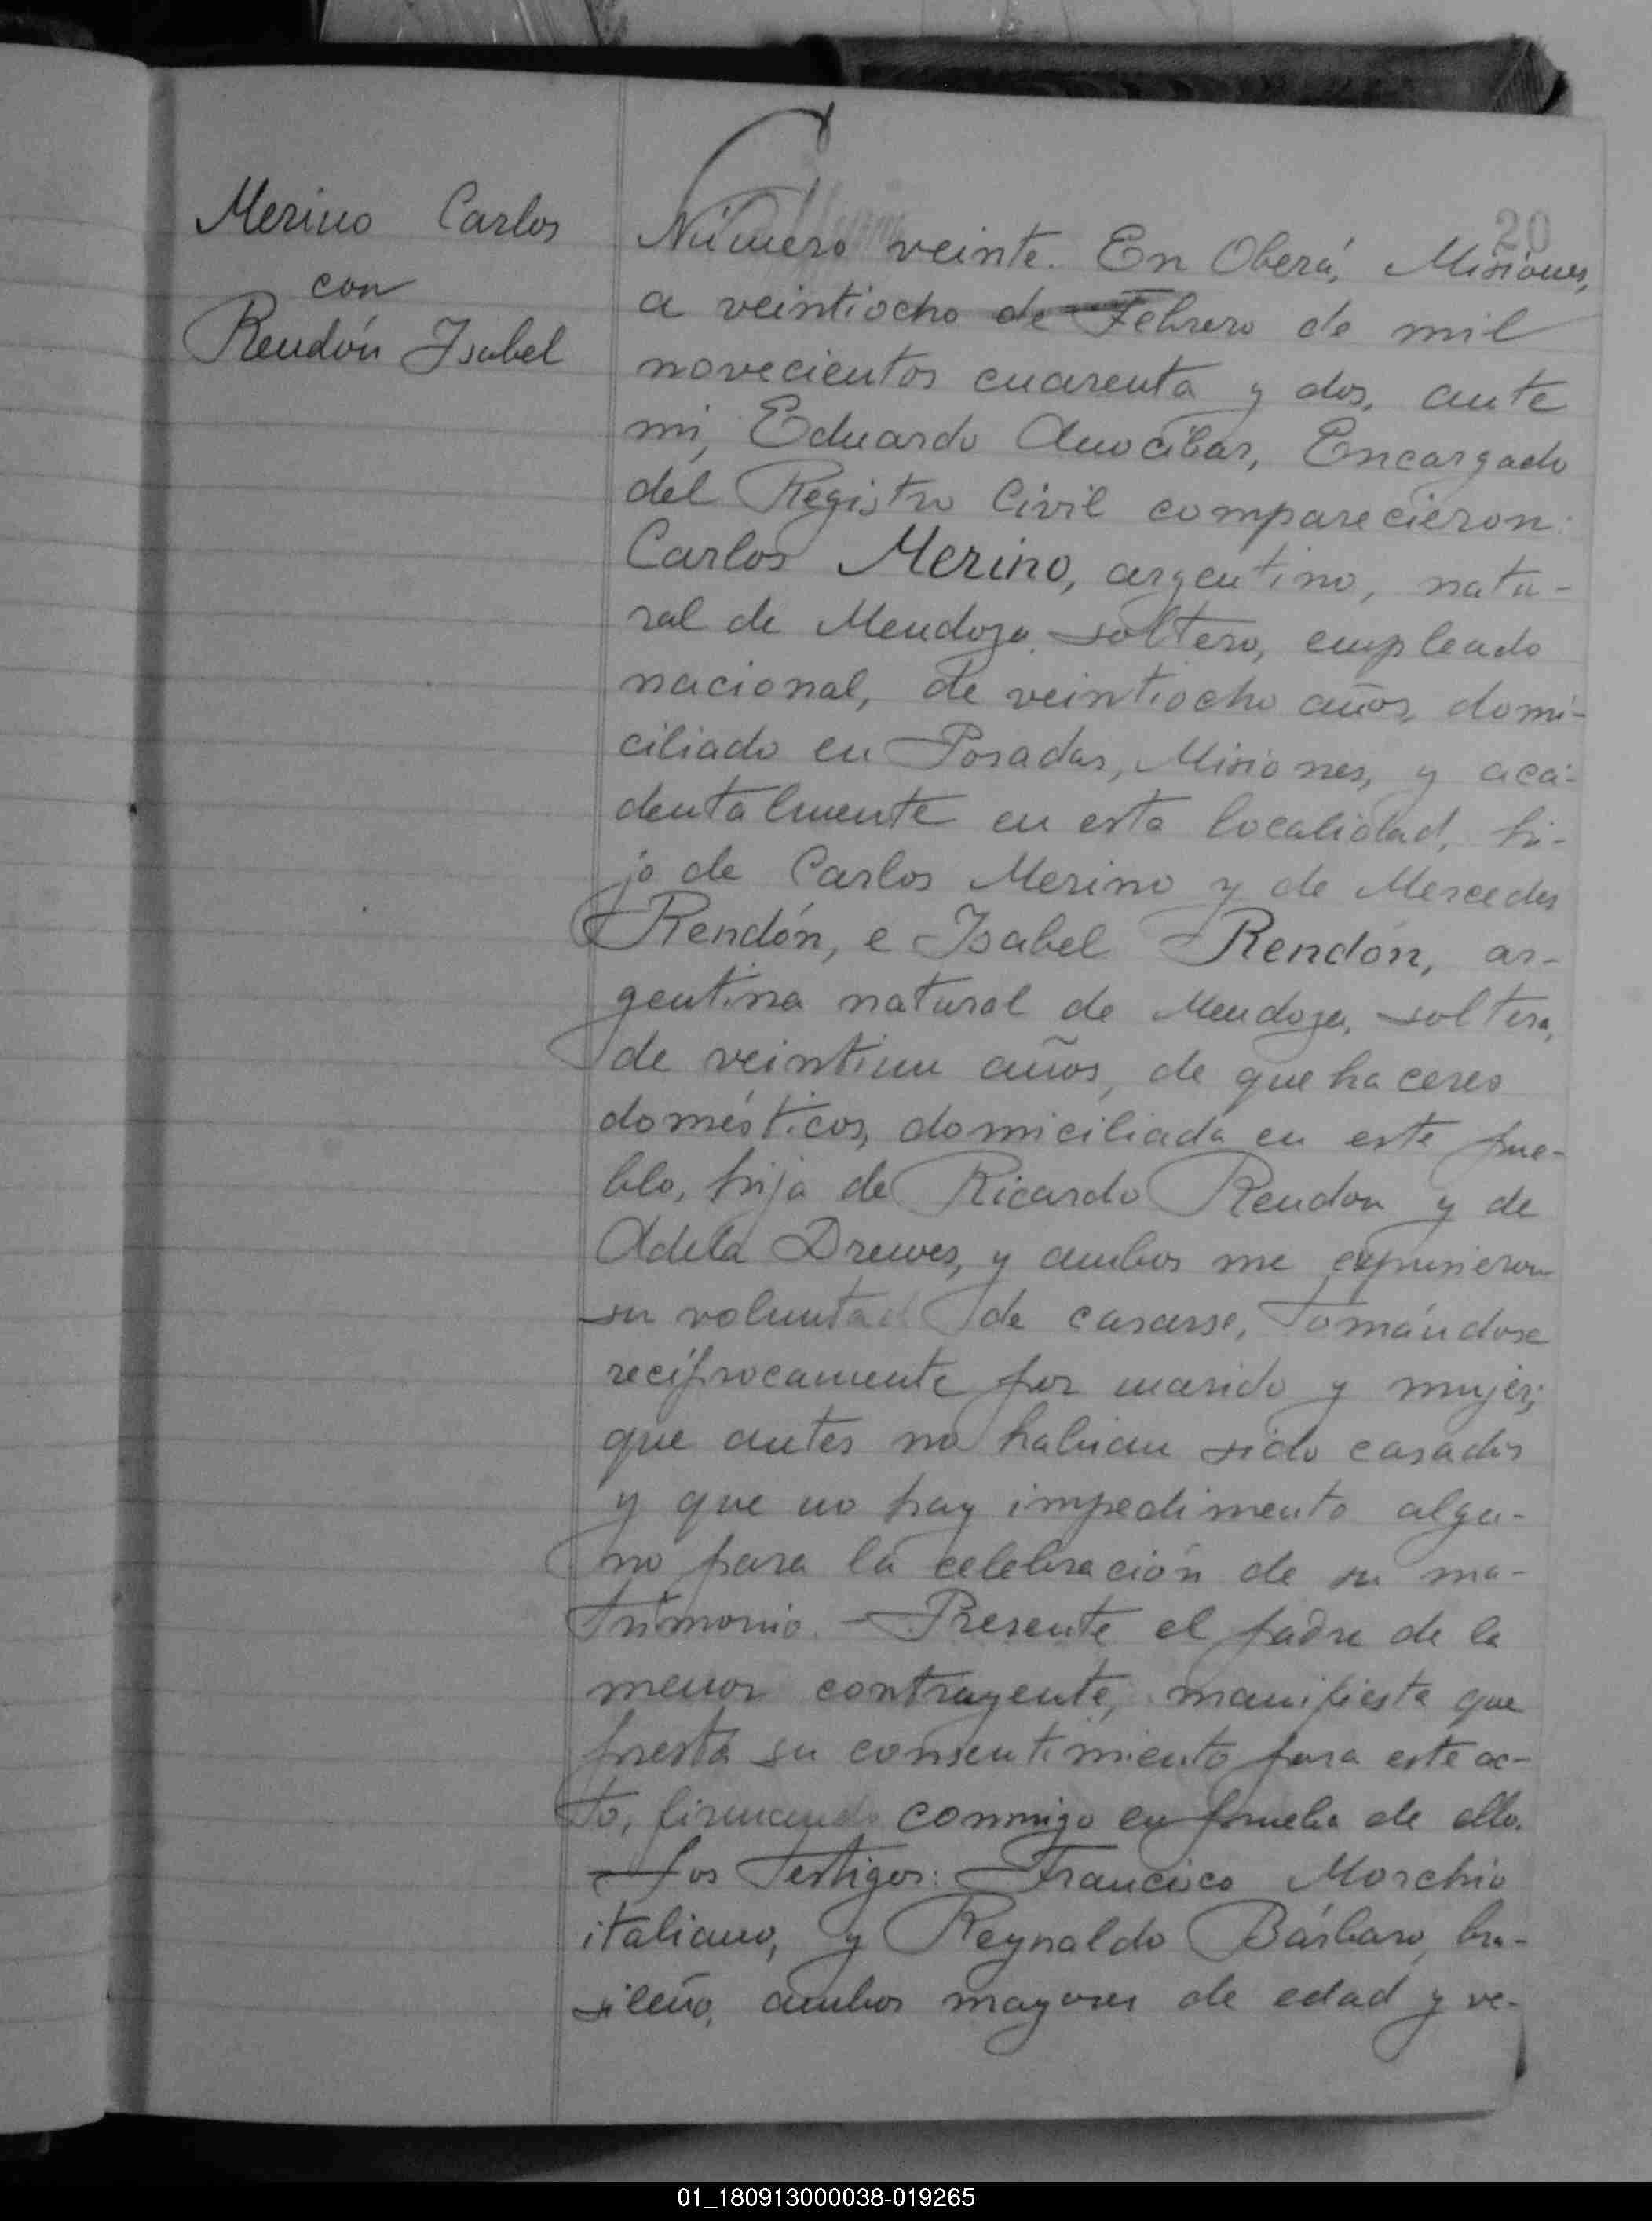 Merino Carlos
con
Rendón Isabel
20
Número veinte. En Oberá, Misiones,
a veintiocho de Febrero de mil
novecientos cuarenta y dos, ante
mi, Eduardo Anocibar, Encargado
del Registro Civil comparecieron:
Carlos Merino, argentino, natu-
ral de Mendoza, soltero, empleado
nacional, de veintiocho años, domi-
ciliado en Posadas, Misiones, y acci-
dentalmente en esta localidad, hi-
jo de Carlos Merino y de Mercedes
Rendón, e Isabel Rendón, ar-
gentina natural de Mendoza, soltera,
de veintiun años, de quehaceres
domésticos, domiciliada en este pue-
blo, hija de Ricardo Rendon y de
Adela Drewes, y ambos me expusieron
su voluntad de casarse, tomándose
recíprocamente por marido y mujer;
que antes no habian sido casados
y que no hay impedimento algu-
no para la celebración de su ma-
trimonio. - Presente el padre de la
menor contrayente, manifiesta que
presta su consentimiento para este ac-
to, firmando conmigo en prueba de ello.
- Los Testigos: Francisco Morchio
italiano, y Reynaldo Bárbaro, bra-
sileño, ambos mayores de edad y ve-
01_180913000038-019265